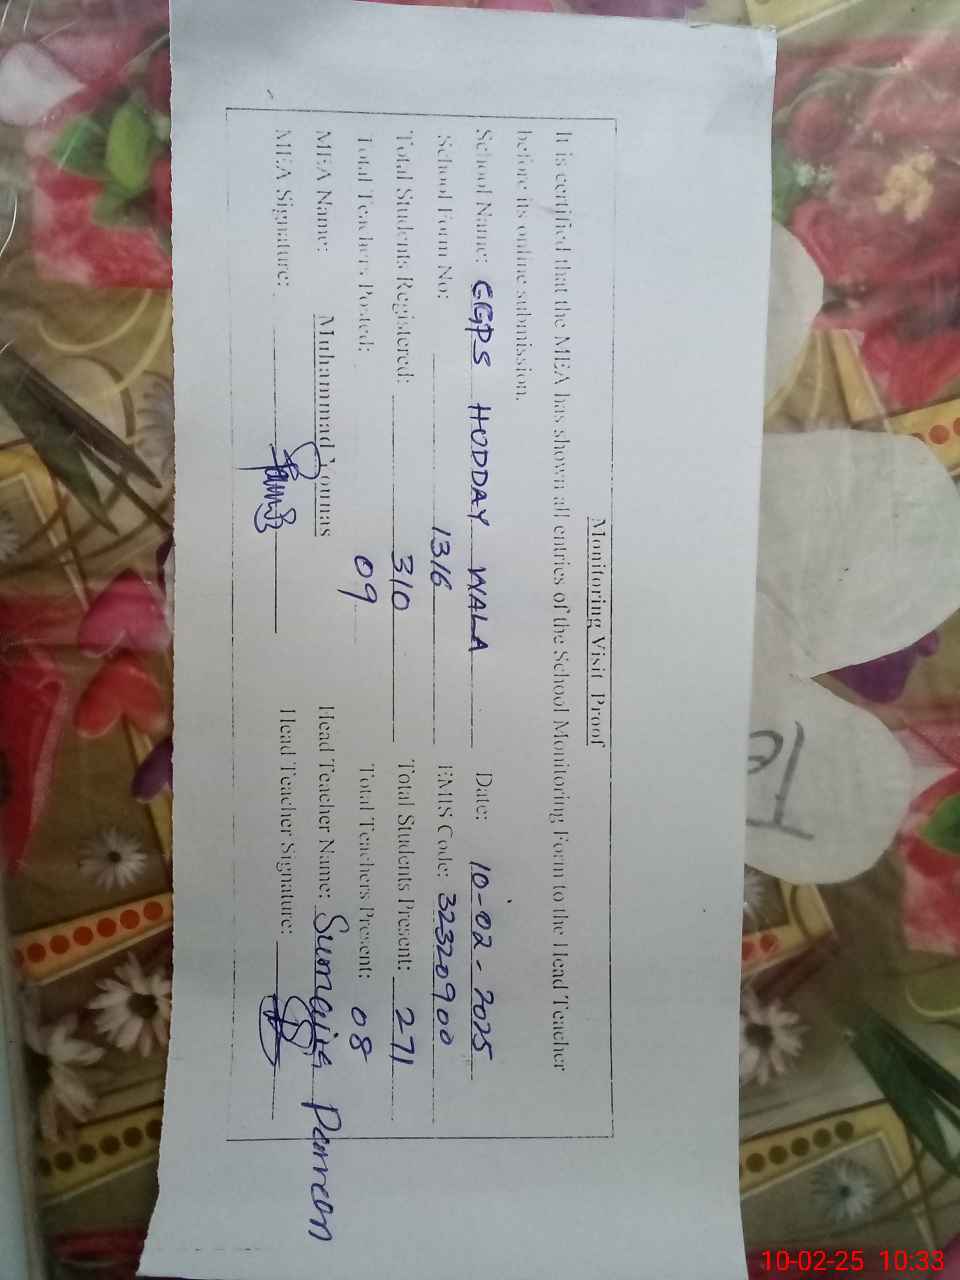 Monitoring Visit Proof
It is certified that the MEA has shown all entries of the School Monitoring Form to the Head Teacher
before its online submission.
School Name: GGPS HODDAY WALA Date: 10-02-2025
School Form No: 1316 EMIS Code: 32320900
Total Students Registered: 310 Total Students Present: 271
Total Teachers Posted: 09 Total Teachers Present: 08
MEA Name: Muhammad Younas Head Teacher Name: Sumaija Parveen
MEA Signature: Head Teacher Signature:
Te
10-02-25 10:33